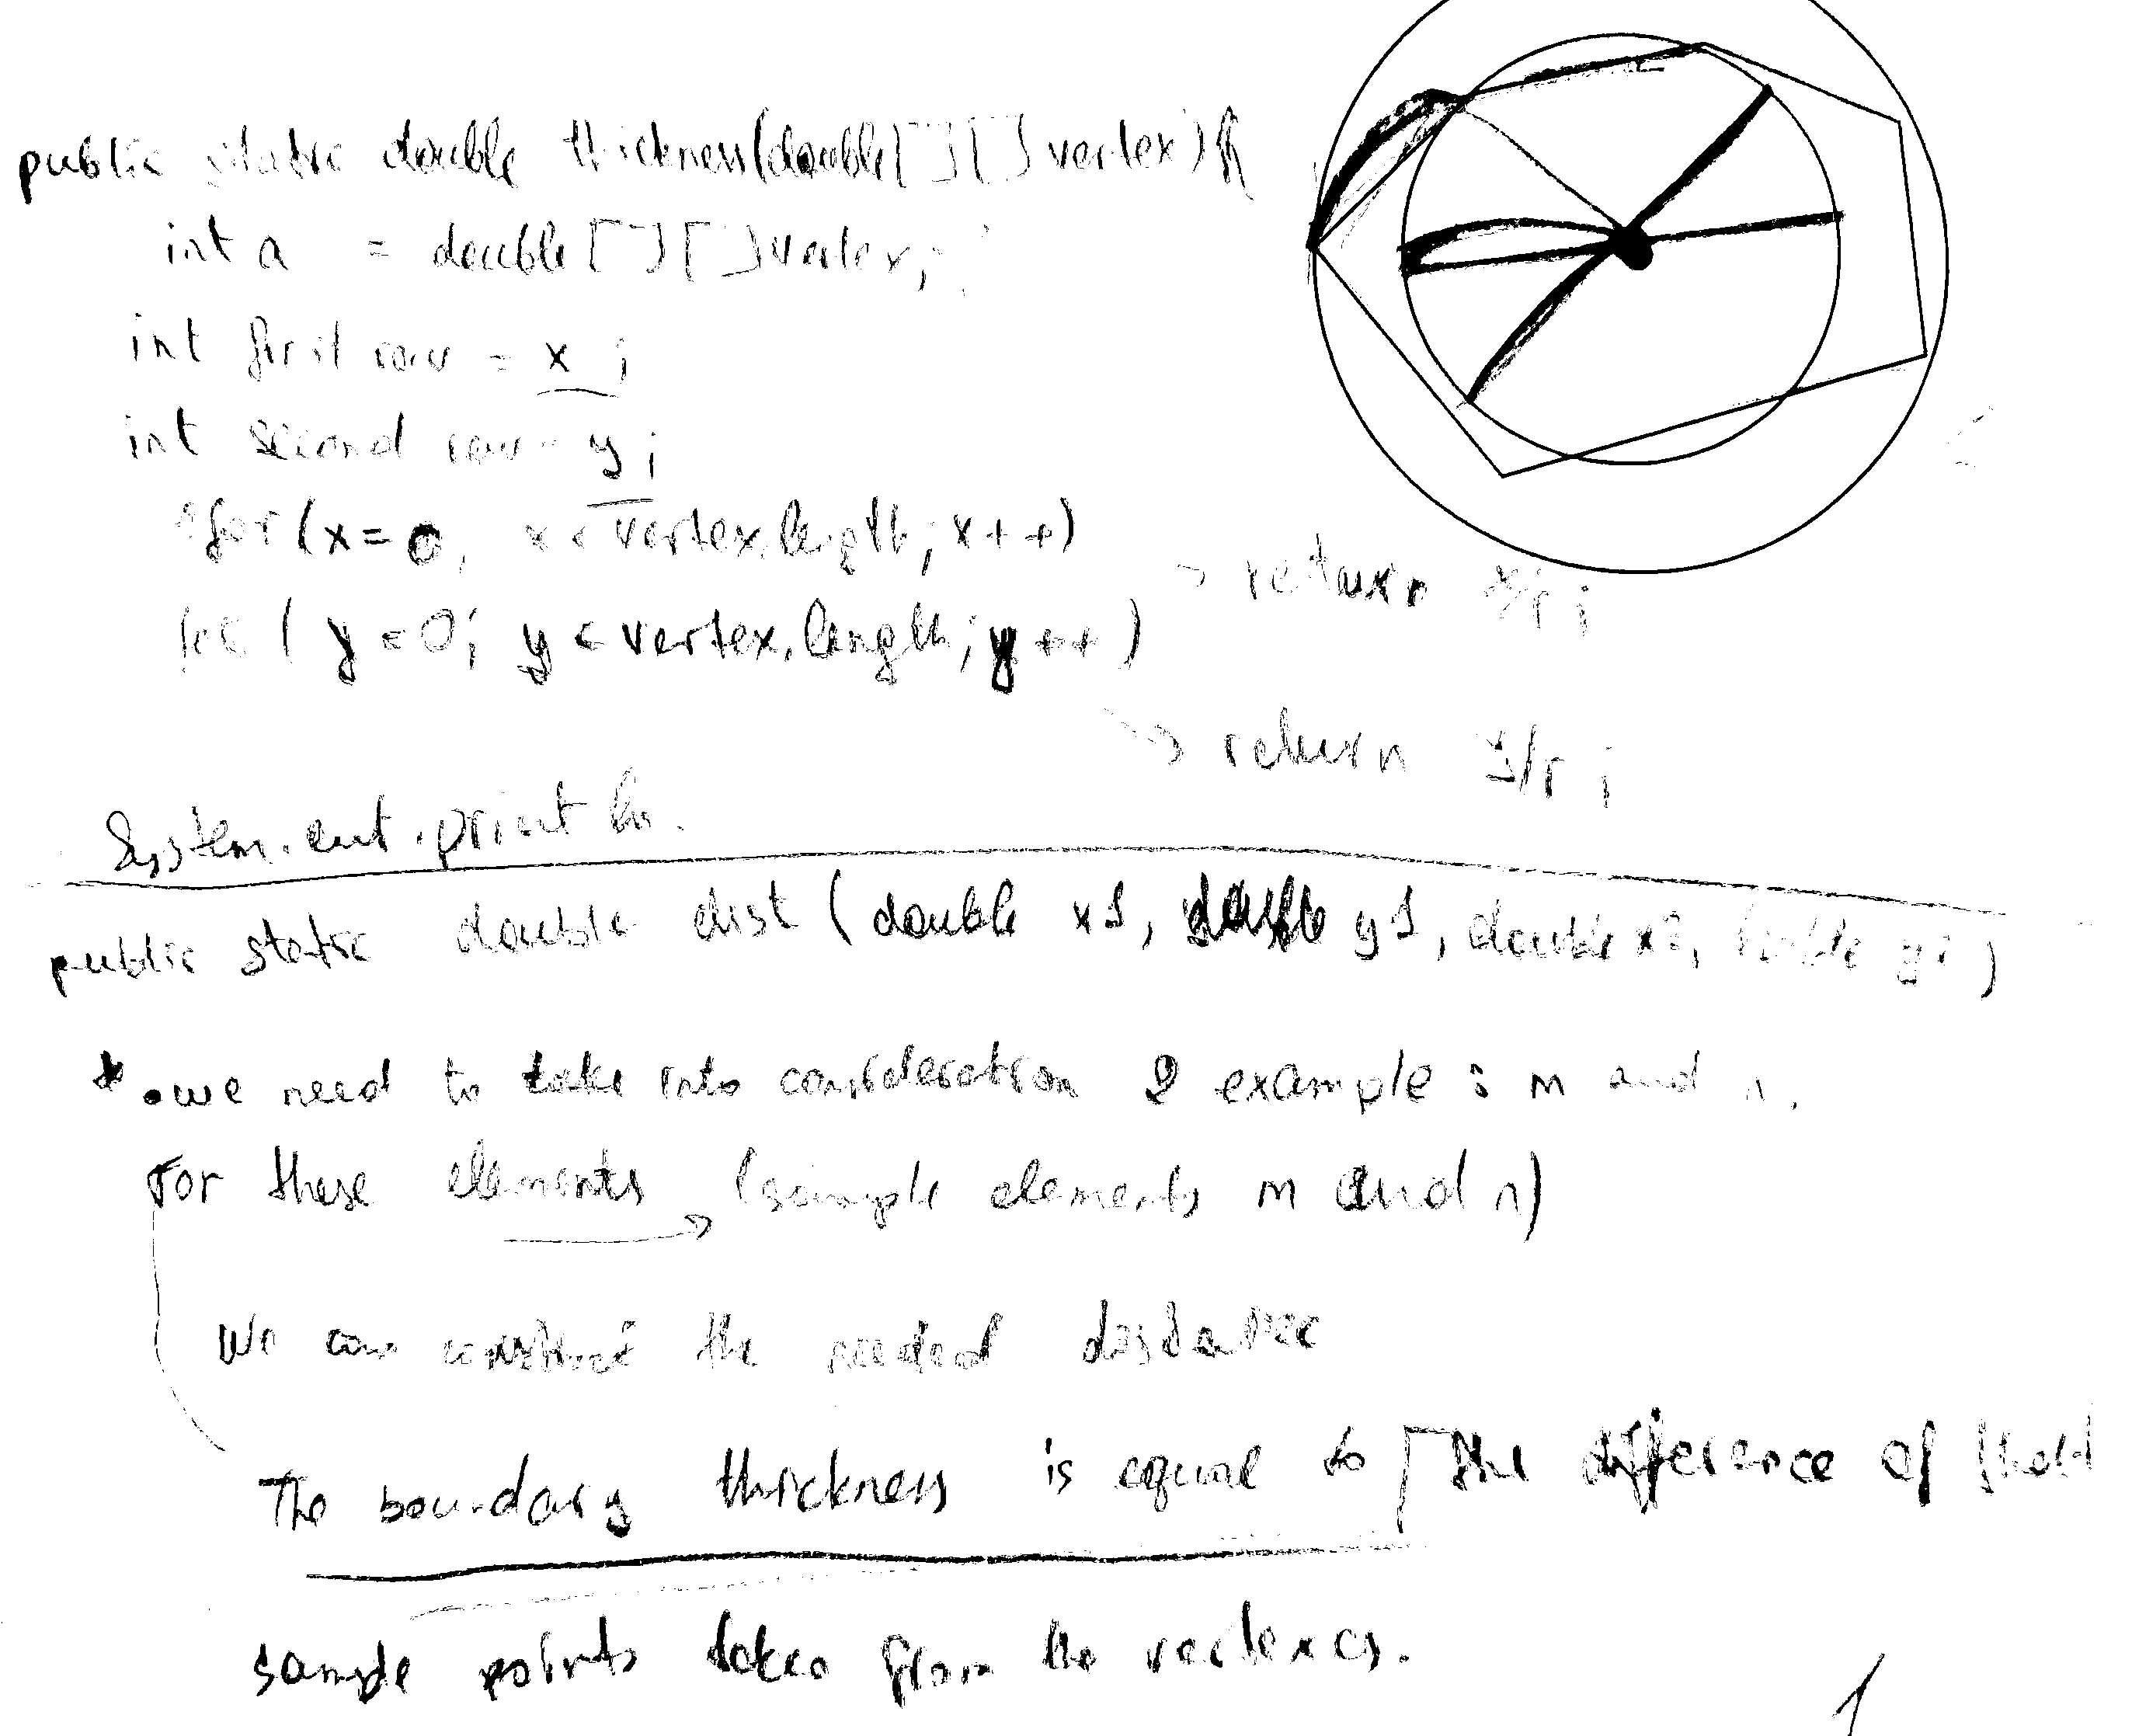 public static double thickness(double[][] vertex){
int a = double[][] vertex;
int first row = x;
int second row = y;
for (x=0, x < vertex.length; x++)
→ return x/r;
for ( y=0; y < vertex.length; y++)
→ return y/r;
System.out.println.
public static double dist (double x1, double y1, double x2, double y2)
* • we need to take into consideration 2 example : m and n.
For these elements → (sample elements m and n)
We can construct the needed distance
The boundary thickness is equal to the difference of
sample points taken from the vertexes.
1